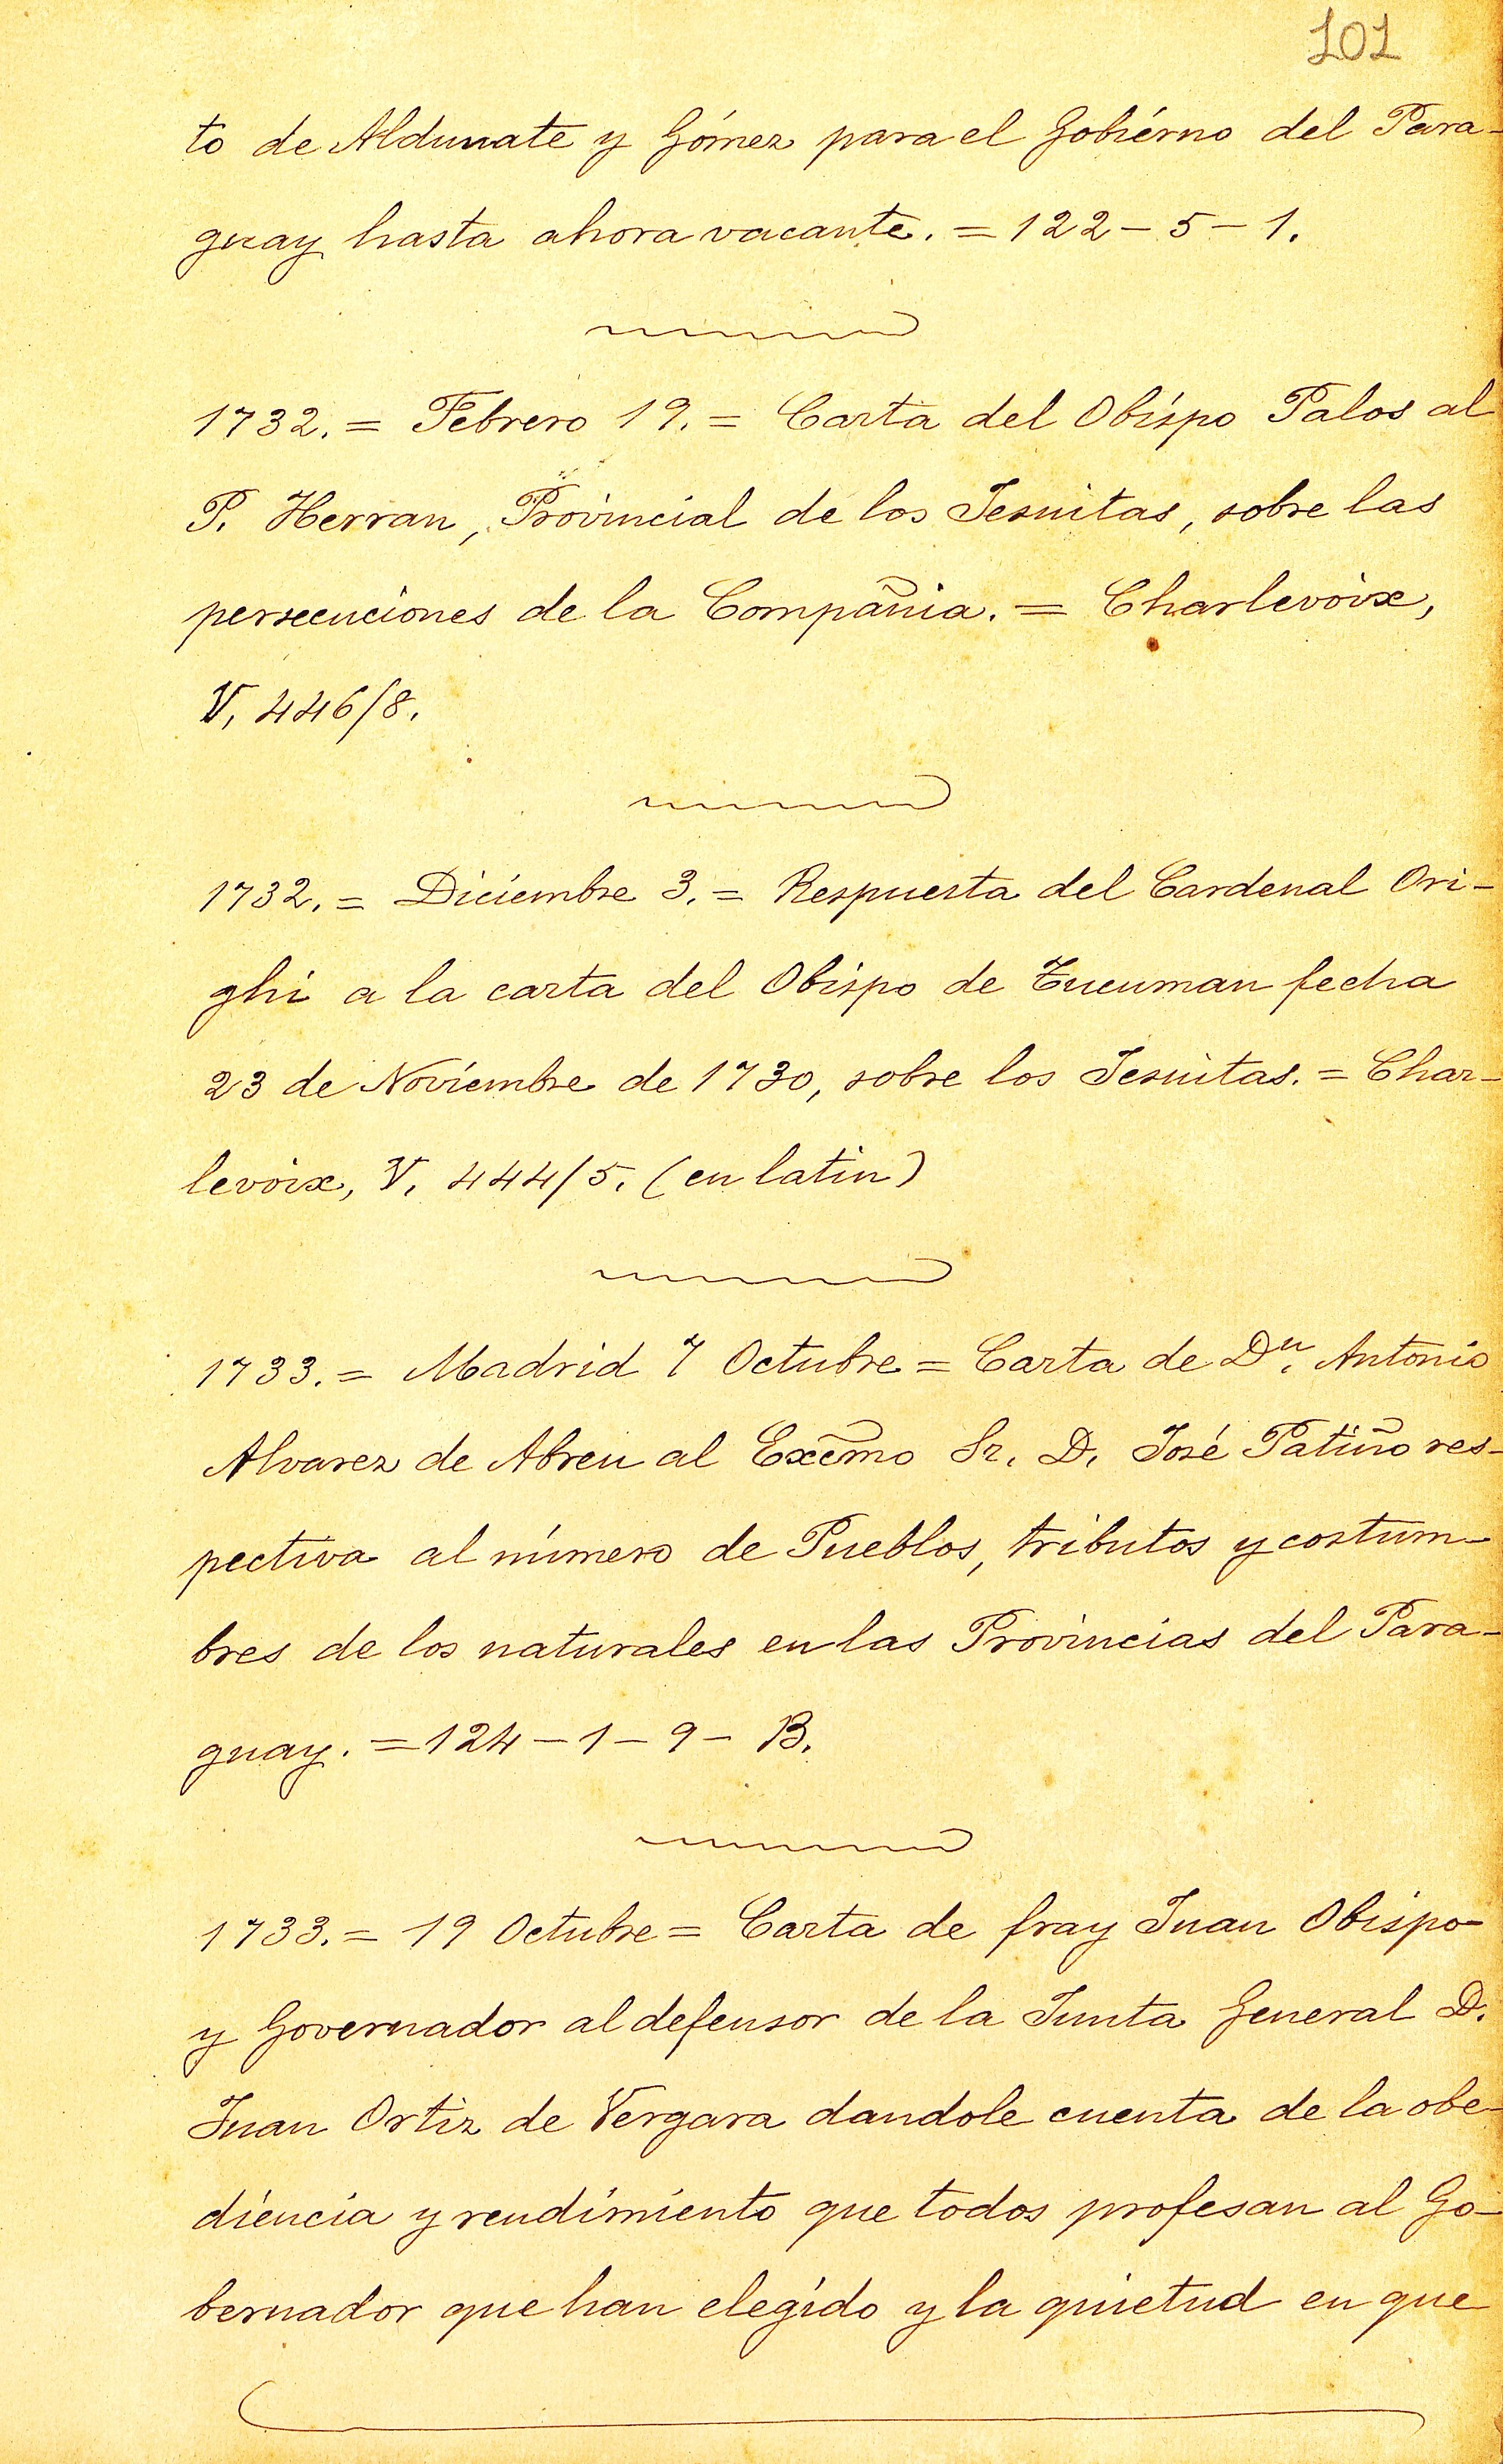 101
to de Aldunate y Gómez para el Gobierno del Para-
guay hasta ahora vacante. = 122 - 5 - 1.
1732. = Febrero 19. = Carta del Obispo Palos al
P. Herran, Provincial de los Jesuitas, sobre las
persecuciones de la Compañia. = Charlevoix,
V, 446/8.
1732. = Diciembre 3. = Respuesta del Cardenal Ori-
ghi a la carta del Obispo de Tucuman fecha
23 de Noviembre de 1730, sobre los Jesuitas. = Char-
levoix, V, 444/5. (en latin)
1733. = Madrid 7 Octubre = Carta de Dn. Antonio
Alvarez de Abreu al Excm̃o Sr. D. José Patiño res-
pectiva al número de Pueblos, tributos y costum-
bres de los naturales en las Provincias del Para-
guay. = 124 - 1 - 9 - B.
1733. = 19 Octubre = Carta de fray Juan Obispo
y Governador al defensor de la Junta General D.
Juan Ortiz de Vergara dandole cuenta de la obe-
diencia y rendimiento que todos profesan al Go-
bernador que han elegido y la quietud en que